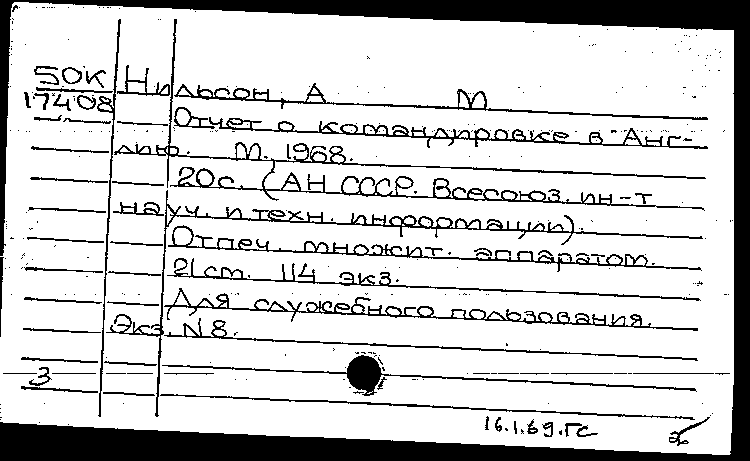 50К Нильсон, А М
17408
Отчет о командировке в Анг-
лию. М., 1968.
20с. (АН СССР. Всесоюз. ин-т
науч. и техн. информации).
Отпеч. множит. аппаратом.
21 ст. 114 экз.
Для служебного пользования.
Экз. N 8.
3
16.1.69.ГС